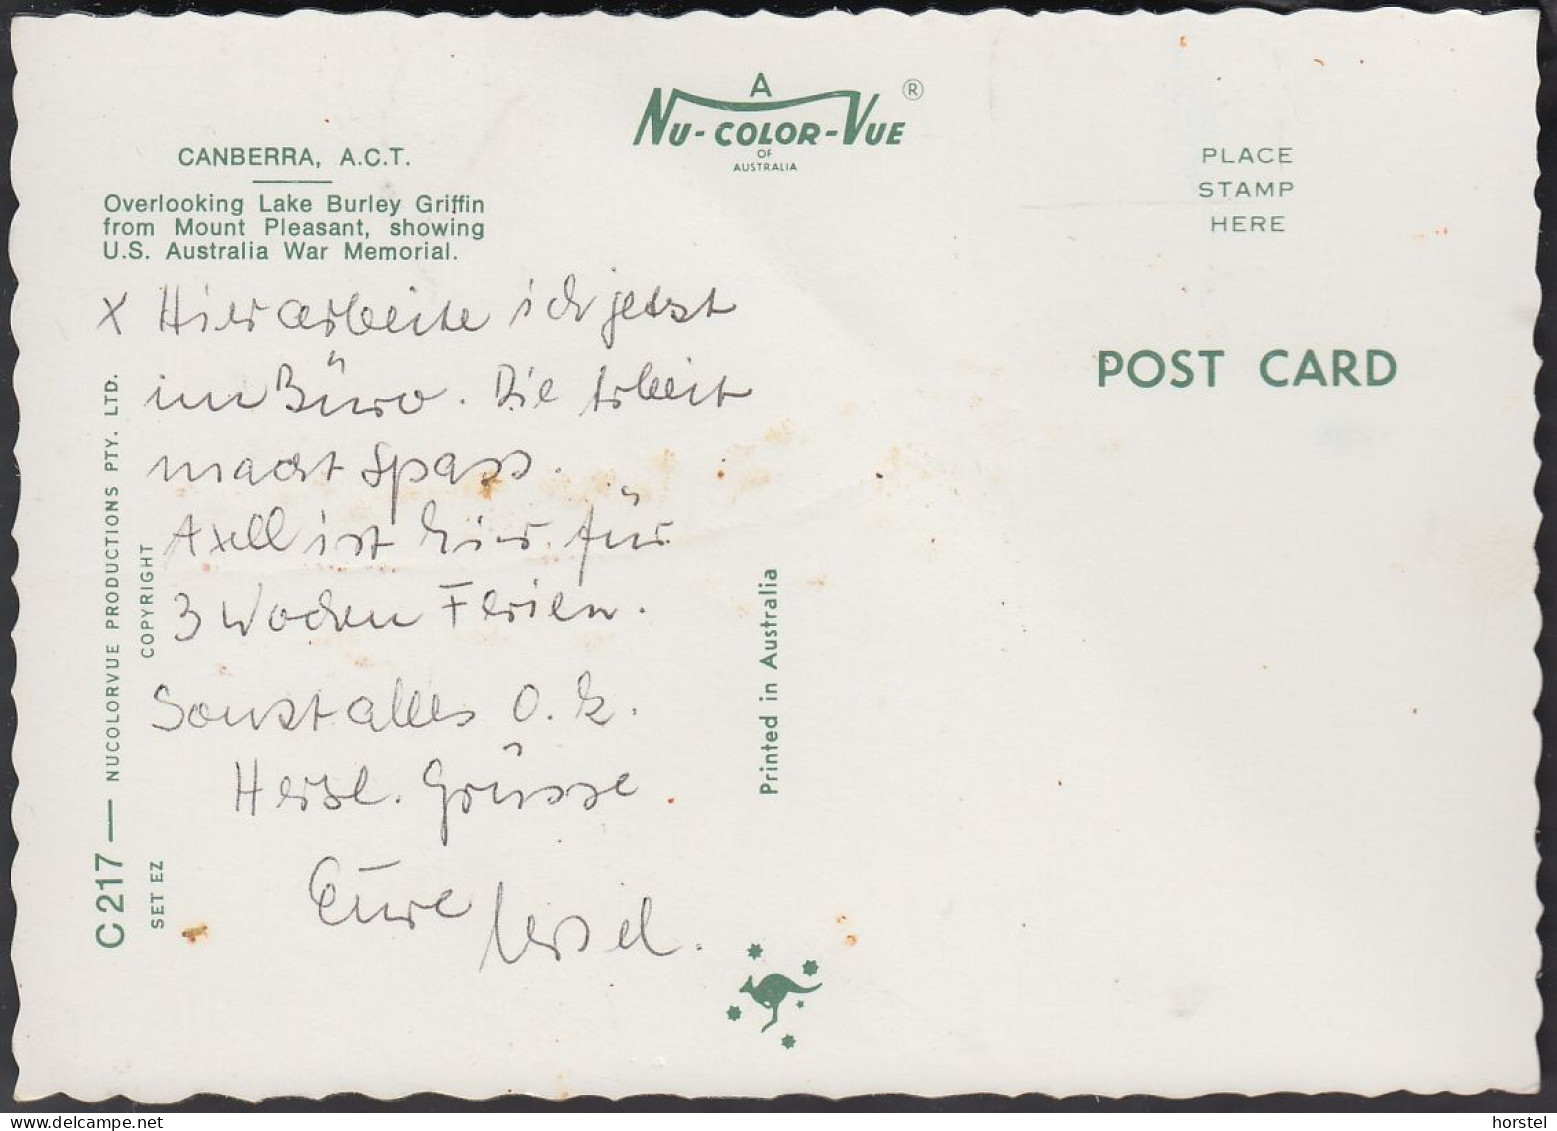 A
NU-COLOR-VUE ®
OF
AUSTRALIA
CANBERRA, A.C.T.
Overlooking Lake Burley Griffin
from Mount Pleasant, showing
U.S. Australia War Memorial.
PLACE
STAMP
HERE
POST CARD
X Hier arbeite ich jetzt
im Büro. Die Arbeit
macht Spass.
Axell ist hier für
3 Wochen Ferien.
Sonst alles O.k.
Herzl. Grüsse
Eure
C 217 — NUCOLORVUE PRODUCTIONS PTY. LTD.
SET EZ COPYRIGHT
Printed in Australia
horstel